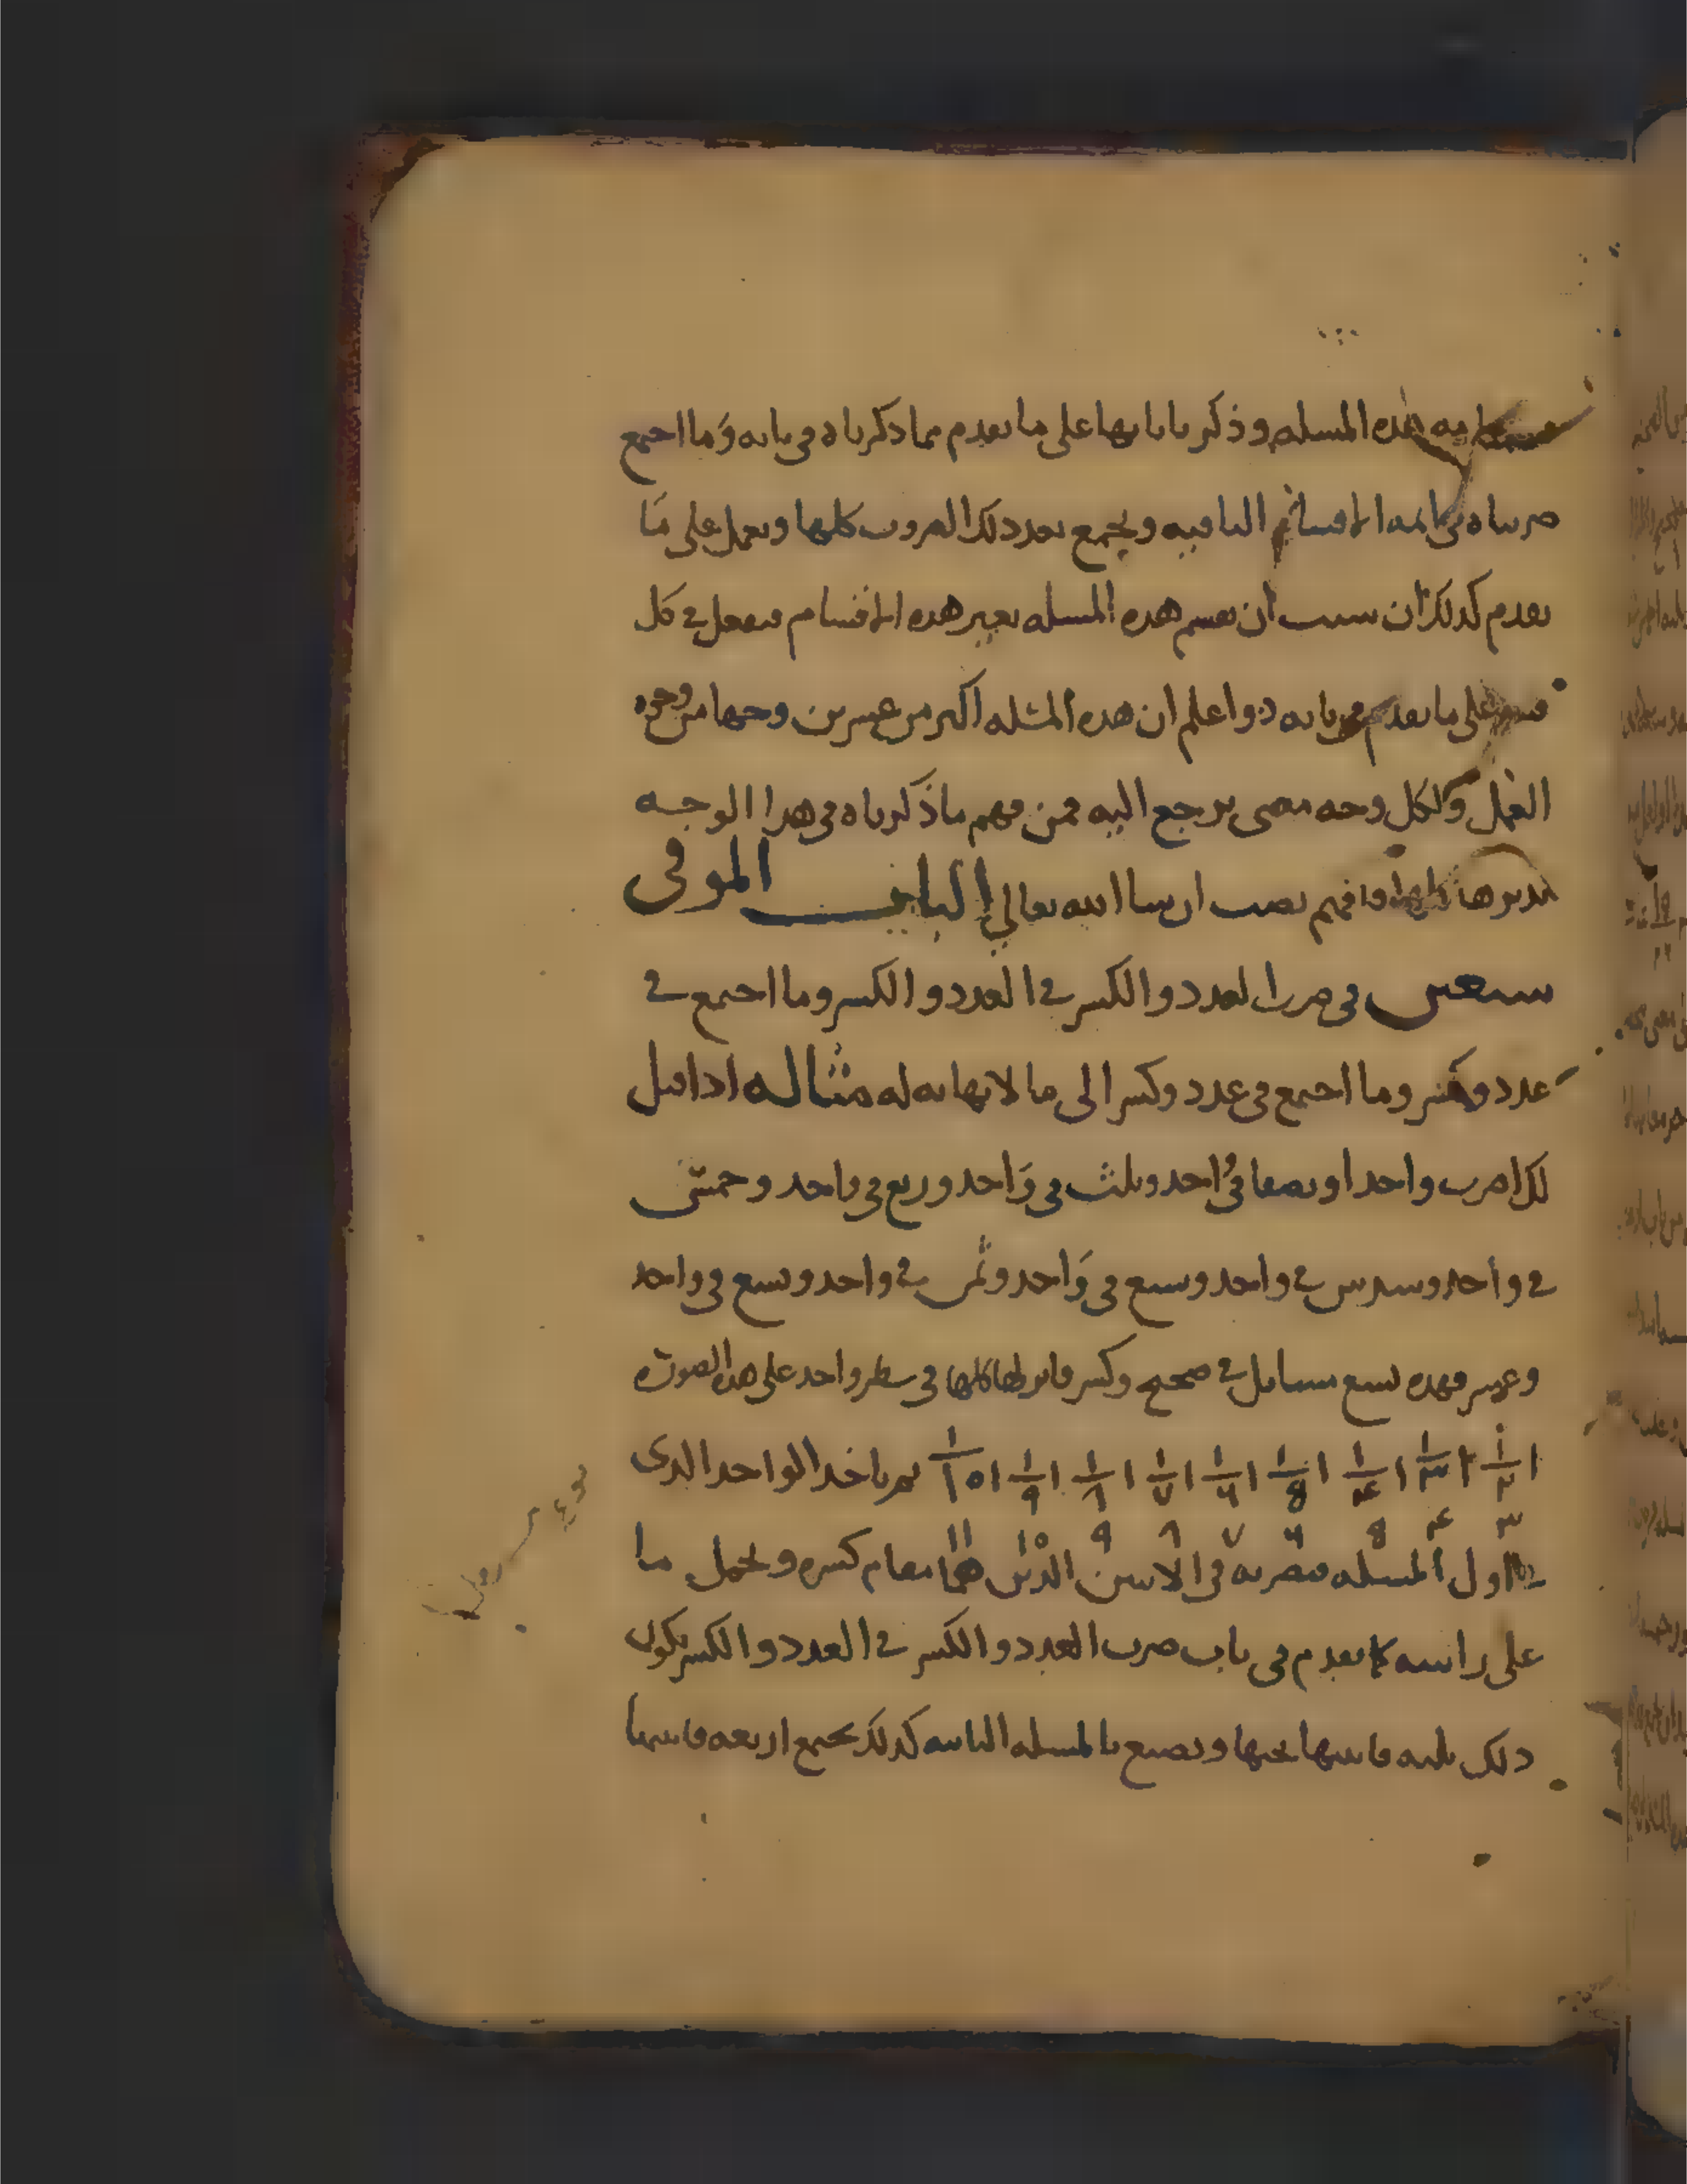 به هذه المسله وذكرنا بابها على ما تقدم مما ذكرناه في بابه وما اجتمع
ضربناه في ايمه الاقسام الباقيه ونجمع بعد ذلك الضروب كلها ونعمل على ما
تقدم كذلك ان شيت ان تقسم هذه المسله بغير هذه الاقسام فتفعل في كل
على ما تقدم في بابه واعلم ان هذه المثله اكثر من عشرين وجها من وجوه
العمل ولكل وجه معنى يرجع اليه فمن فهم ما ذكرناه في هذا الوجه
تدبر فافهم تصب ان شا الله تعالى الباب الموفى
ستعين في ضرب العدد والكسر في العدد والكسر وما اجتمع في
عدد وكسر وما اجتمع في عدد وكسر الى ما لا نهايه له مثاله اذا قيل
لك اضرب واحدا ونصفا في احد وثلث في واحد وربع في واحد وخمس
في واحد وسدس في واحد وسبع في واحد وثمن في واحد وتسع في واحد
وعشر فهذه تسع مسايل في صحيح وكسر فانزلها كلها في سطر واحد على هذه الصوره
١ ١/٢ ١ ١/٣ ١ ١/٤ ١ ١/٥ ١ ١/٦ ١ ١/٧ ١ ١/٨ ١ ١/٩ ١ ١/١٠ ثم تاخذ الواحد الذي
٣ ٤ ٥ ٦ ٧ ٨ ٩ ١٠ ١١
في اول المسله فتضربه في الاثنين الذين هما مقام كسره وتحمل ما
على راسه كما تقدم في باب ضرب العدد والكسر في العدد والكسر يكون
ذلك ثلثه فاثبتها تحتها وتصنع بالمسله الثانيه كذلك يجتمع اربعه فاثبتها